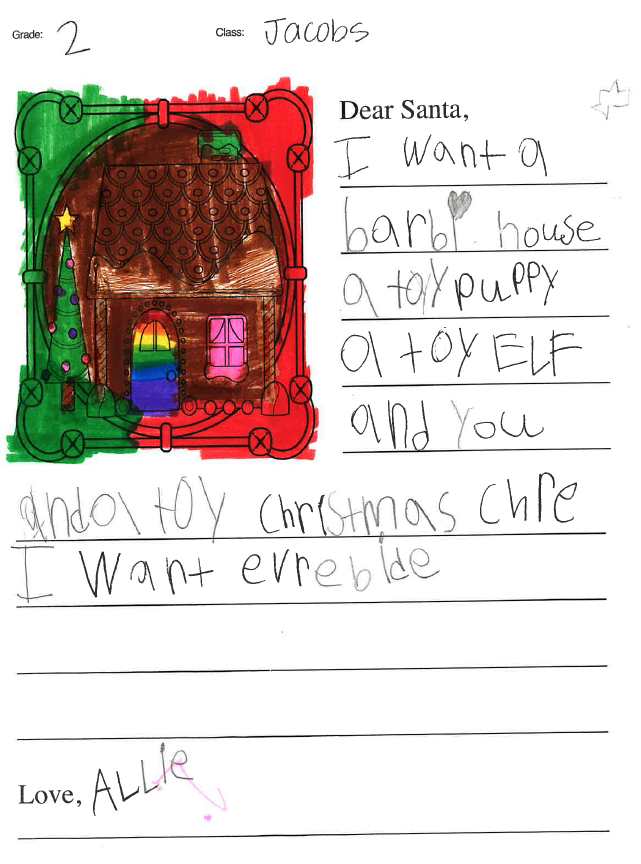 Grade: 2 Class: Jacobs
Dear Santa,
I want a
barbi house
a toy puppy
a toy ELF
and you
and a toy christmas chre
I want evrebide
Love, ALLIE